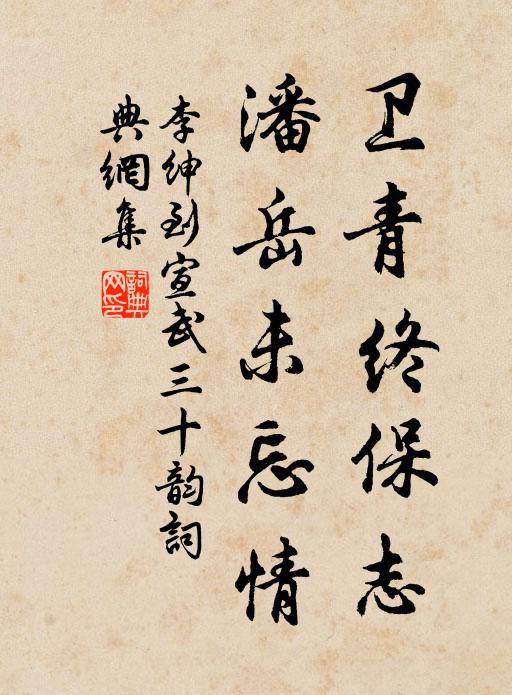 卫青终保志
潘岳未忘情
李绅到宣武三十韵詞
典網集
詞典网印